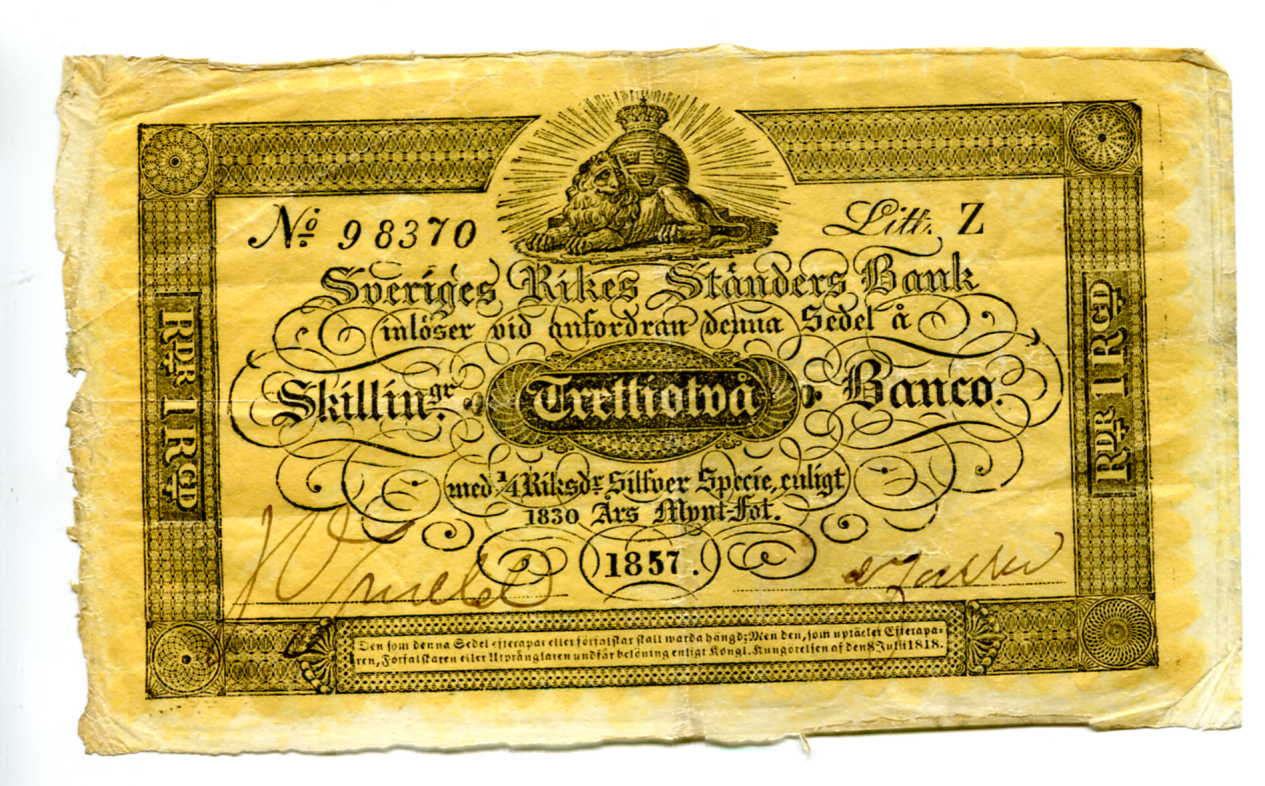 No 98370 Litt. Z
Sveriges Rikes Ständers Bank
inlöser vid anfordran denna Sedel å
Skillingr. Trettiotvå Banco.
med 1/4 Riksdr Silfver Specie, enligt
1830 Års Mynt-Fot.
1857.
RDR 1 RGD
RDR 1 RGD
Den som denna Sedel efterapar eller förfalskar skall warda hängd; Men den, som uptäcker Efterapa-
ren, Förfalskaren eller Utprånglaren undfår belöning enligt Kongl. Kungörelsen af den 8 Julii 1818.